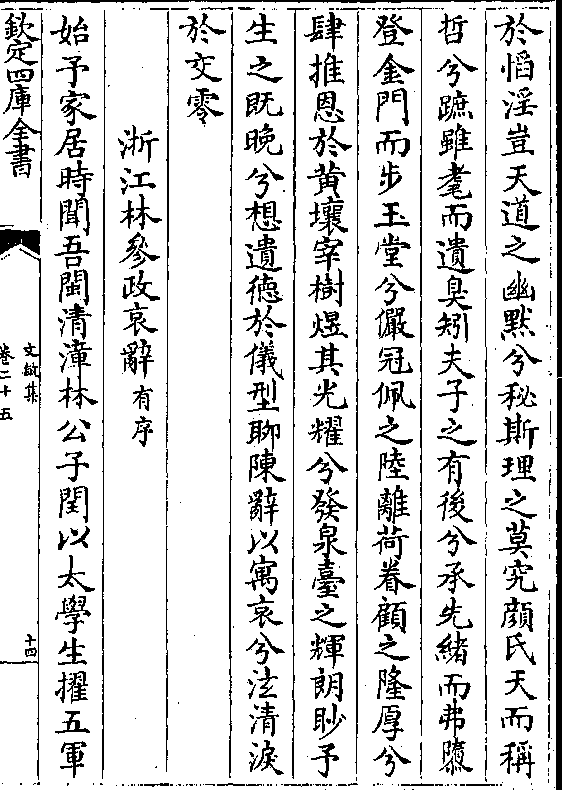 於慆淫豈天道之幽默兮秘斯理之莫究顔氏天而稱
哲兮蹠雖耄而遺臭矧夫子之有後兮承先緒而弗隳
登金門而步玉堂兮儼冠佩之陸離荷眷顧之隆厚兮
肆推恩於黄壤宰樹煜其光耀兮發泉臺之輝朗眇予
生之既晚兮想遺徳於儀型聊陳辭以寓哀兮泫清淚
於交零
浙江林參政哀辭有序
始予家居時聞吾閩清漳林公子閏以太學生擢五軍
欽定四庫全書
文敏集
卷二十五
十四